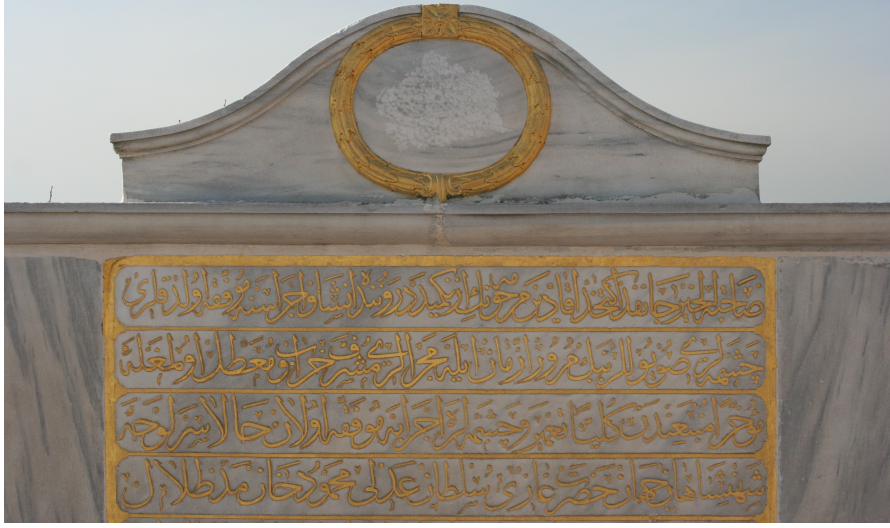 صاحبة الخير جانفدا كتخدا قادين مرحومه نك درونده انشا و اجراسنه موفقه اولدقلرى
چشمه لرى صويوللريله مرور ازمان ايله مجرالرى مشرف خراب و معطل اولمغله
مؤخرا منبعندن كليا تعمير و چشمه لره اجرايه موفقه اولان حالا سرلوحه
شهنشاهان جهان حضرت غازى سلطان عدلى محمود خان مد ظلال